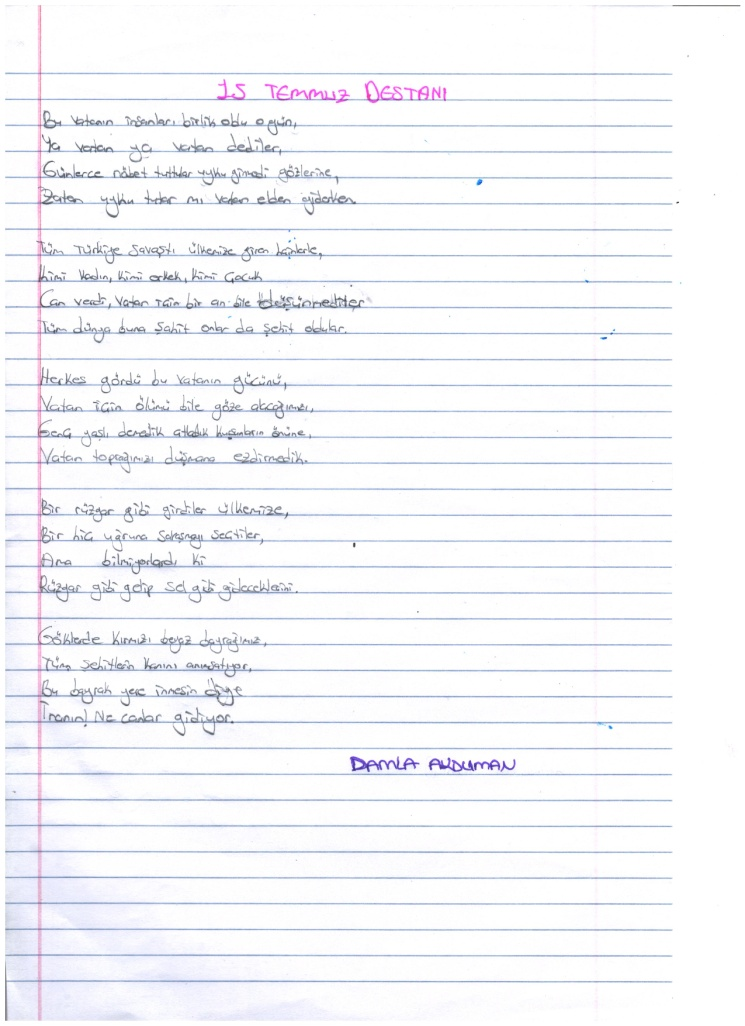 15 TEMMUZ DESTANI
Bu vatanın insanları birlik oldu o gün,
Ya vatan ya vatan dediler,
Günlerce nöbet tuttular uyku girmedi gözlerine,
Zaten uyku tutar mı vatan elden giderken.
Tüm Türkiye savaştı ülkemize giren hainlerle,
Kimi kadın, kimi erkek, kimi çocuk
Can verdi, vatan için bir an bile düşünmediler
Tüm dünya buna şahit onlar da şehit oldular.
Herkes gördü bu vatanın gücünü,
Vatan için ölümü bile göze alacağımızı,
Genç yaşlı demedik atladık kurşunların önüne,
Vatan toprağımızı düşmana ezdirmedik.
Bir rüzgar gibi girdiler ülkemize,
Bir hiç uğruna savaşmayı seçtiler,
Ama bilmiyorlardı ki
Rüzgar gibi gelip sel gibi gideceklerini.
Göklerde kırmızı beyaz bayrağımız,
Tüm şehitlerin kanını anımsatıyor,
Bu bayrak yere inmesin diye
İnanın! Ne canlar gidiyor.
DAMLA AKDUMAN